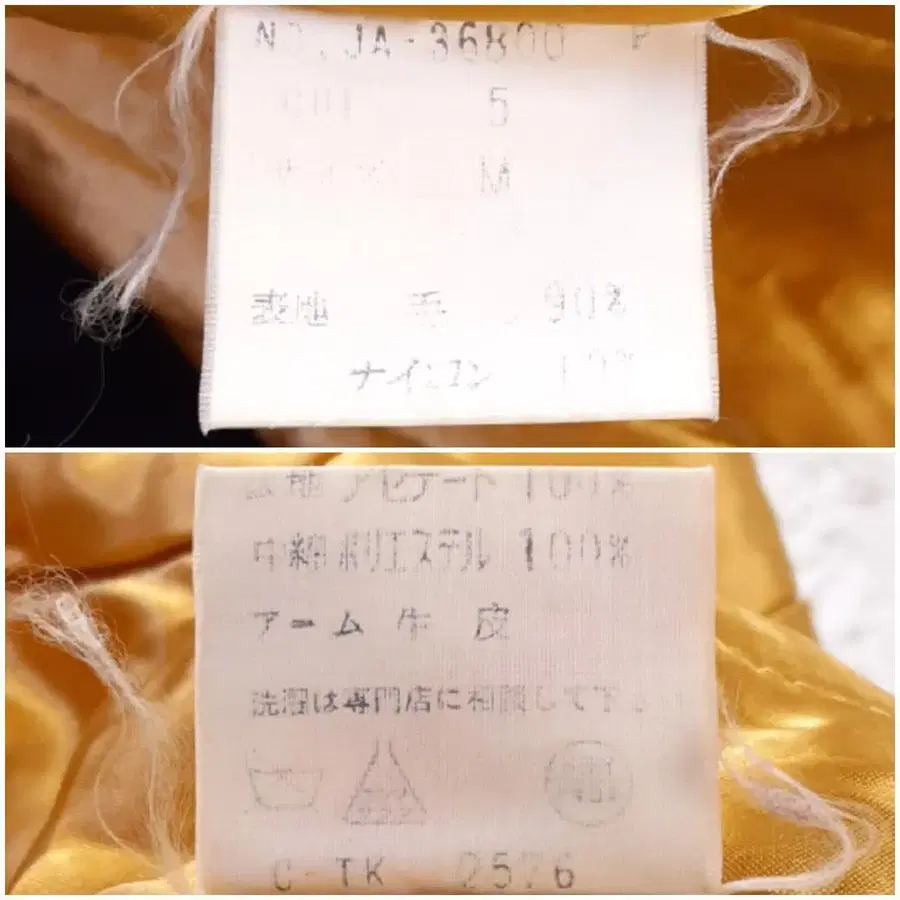 NO.JA-36800 P
5
M
表地 毛 90%
ナイロン 10%
アセテート 100%
中綿 ポリエステル 100%
アーム 牛皮
洗濯は専門店に相談して下
C-TK 2576